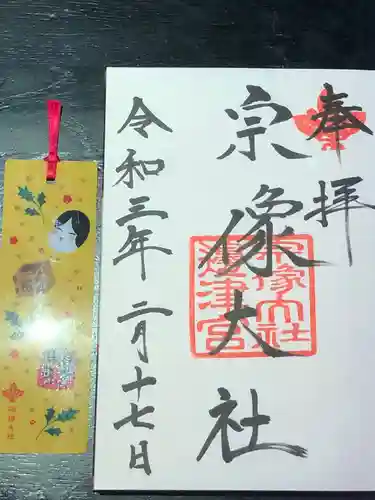 奉拝
宗像大社
宗像大社
邊津宮
令和三年二月十七日